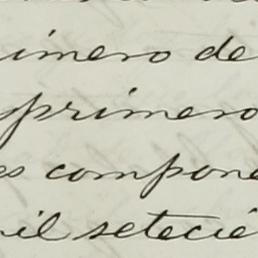 imero de
primero
es compone
il setecie